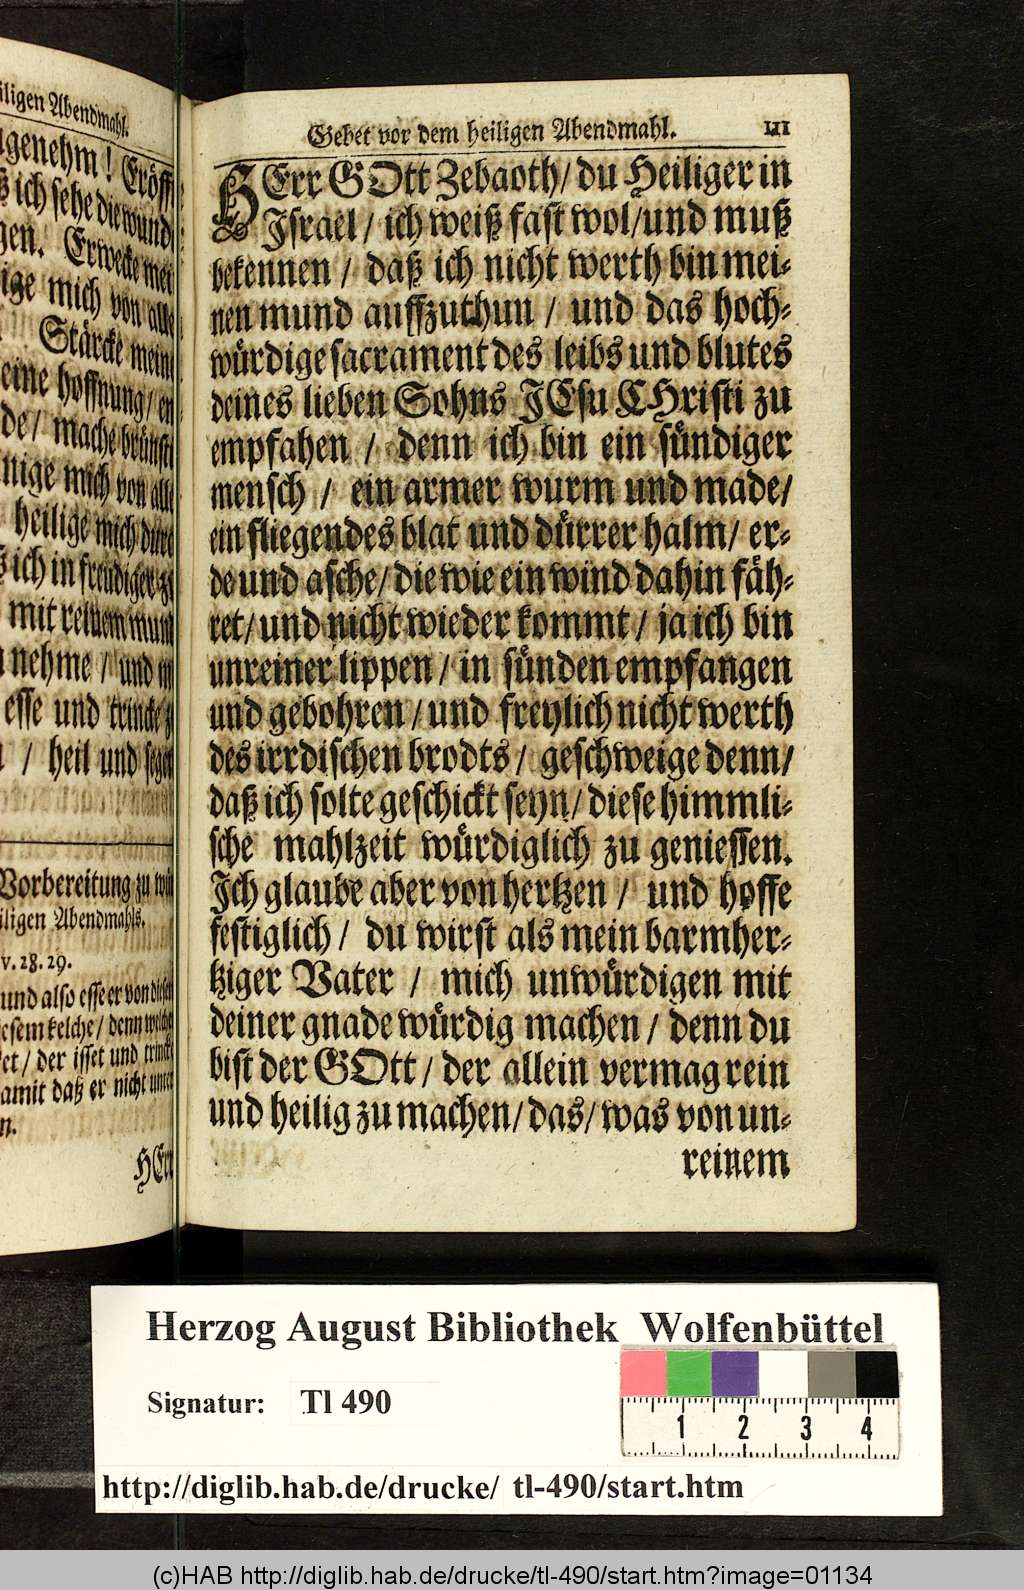 iligen Abendmahl.
genehm! Eröff
ß ich sehe die wund
gen. Erwecke mei
ige mich von alle
Stärcke meine
eine hoffnung/ en
de/ mache brünsti
nige mich von alle
heilige mich durc
ß ich in freudiger
mit reinem mun
nehme / und
esse und trincke
/ heil und segen
Vorbereitung zu
iligen Abendmahls.
v. 28. 29.
und also esse er von diesem
esem kelche/ denn welche
et/ der isset und trincke
amit daß er nicht unter
n.
HErr
Gebet vor dem heiligen Abendmahl. 111
HErr GOtt Zebaoth/ du Heiliger in
Israel / ich weiß fast wol/ und muß
bekennen / daß ich nicht werth bin mei-
nen mund auffzuthun / und das hoch-
würdige sacrament des leibs und blutes
deines lieben Sohns JEsu CHristi zu
empfahen / denn ich bin ein sündiger
mensch / ein armer wurm und made/
ein fliegendes blat und dürrer halm/ er-
de und asche/ die wie ein wind dahin fäh-
ret/ und nicht wieder kommt / ja ich bin
unreiner lippen / in sünden empfangen
und gebohren / und freylich nicht werth
des irrdischen brodts / geschweige denn/
daß ich solte geschickt seyn/ diese himmli-
sche mahlzeit würdiglich zu geniessen.
Ich glaube aber von hertzen / und hoffe
festiglich / du wirst als mein barmher-
tziger Vater / mich unwürdigen mit
deiner gnade würdig machen / denn du
bist der GOtt / der allein vermag rein
und heilig zu machen/ das/ was von un-
reinem
Herzog August Bibliothek Wolfenbüttel
Signatur: Tl 490
1 2 3 4
http://diglib.hab.de/drucke/ tl-490/start.htm
(c)HAB http://diglib.hab.de/drucke/tl-490/start.htm?image=01134